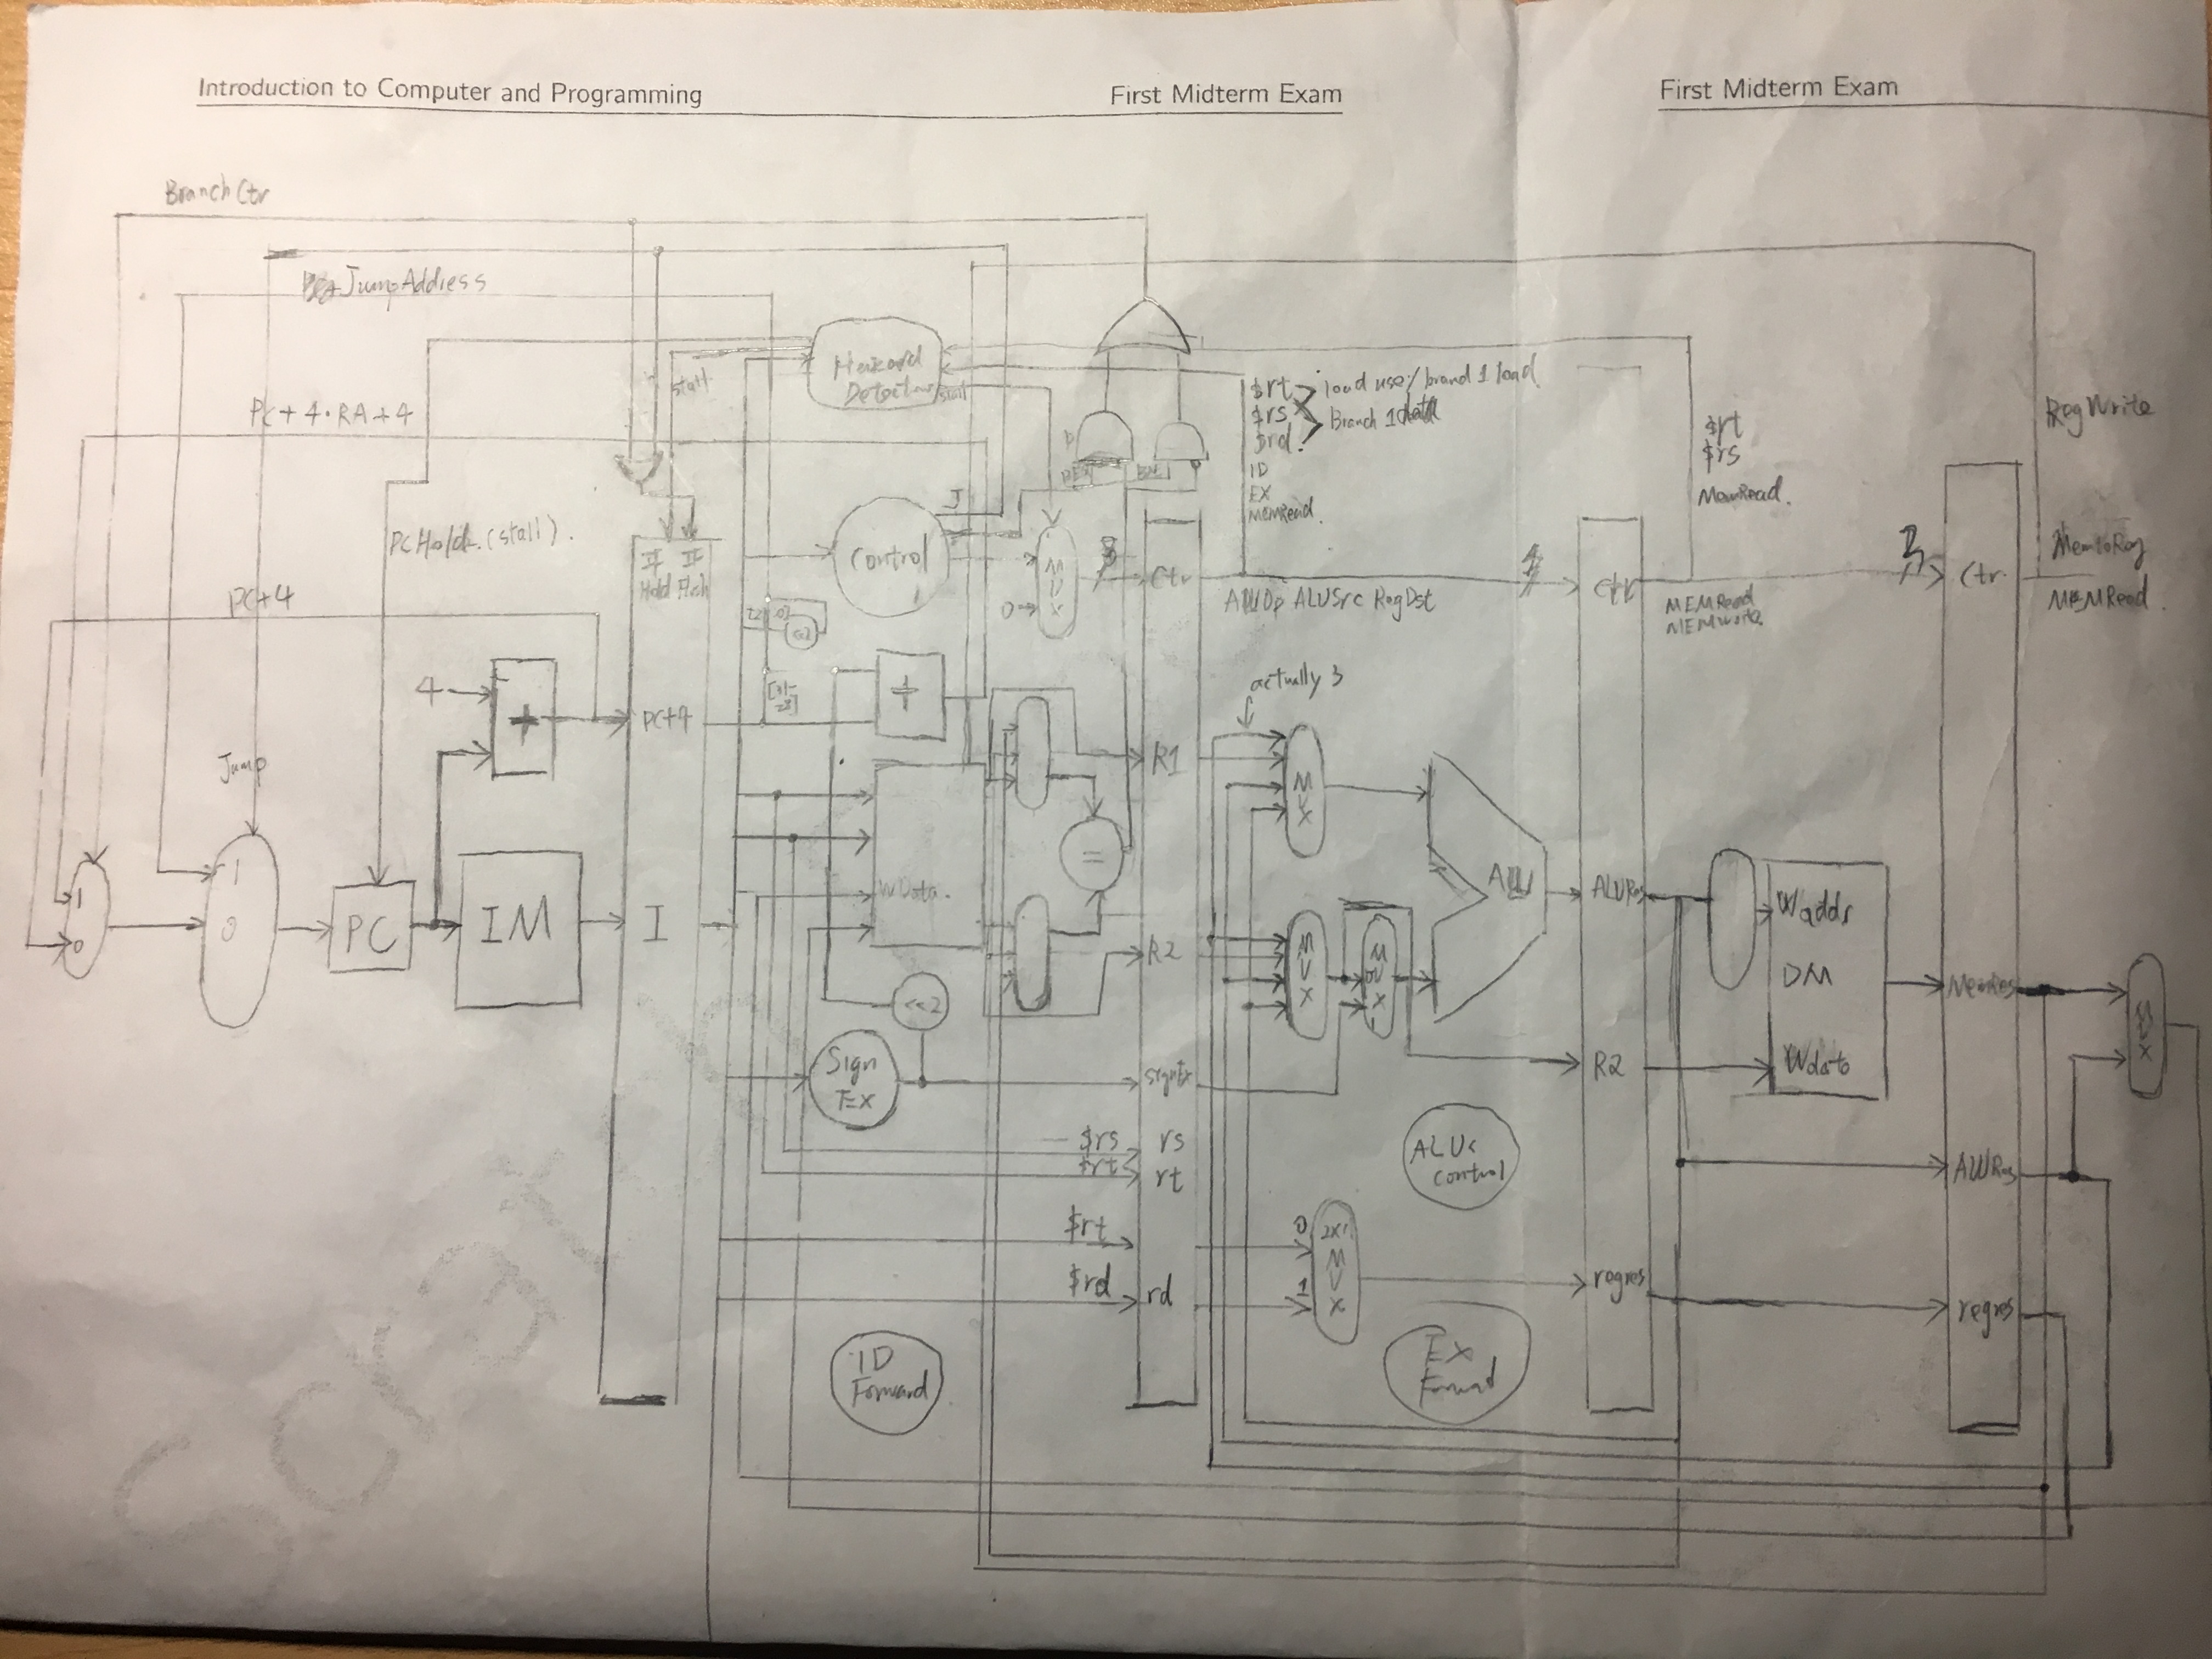 Introduction to Computer and Programming
First Midterm Exam
First Midterm Exam
Branch Ctr
Jump Address
PC+4
PC+4
Jump
PCHold (stall).
stall
1
0
1
0
PC
4
+
IM
IF IF
Hold
PC+4
I
Hazard
control
J
<<2
+
WData.
<<2
Sign
Ex
ID
Forward
0
M
U
X
=
$rs
$rt
$rt
$rd
Ctr
R1
R2
rs
rt
rd
$rt
$rs
$rd
load use / branch 1 load
Branch 1
ID
EX
MEMRead.
ALUOp ALUSrc RegDst
actually 3
M
U
X
M
U
X
M
U
X
0
1
M
U
X
ALU
ALU
control
Ex
Forward
Ctr
ALURes
R2
regres
$rt
$rs
MemRead.
MEMRead
MEMWrite
Waddr
DM
Wdata
2
Ctr
MemRes
ALURes
regres
RegWrite
MemtoReg
MEMRead
M
U
X